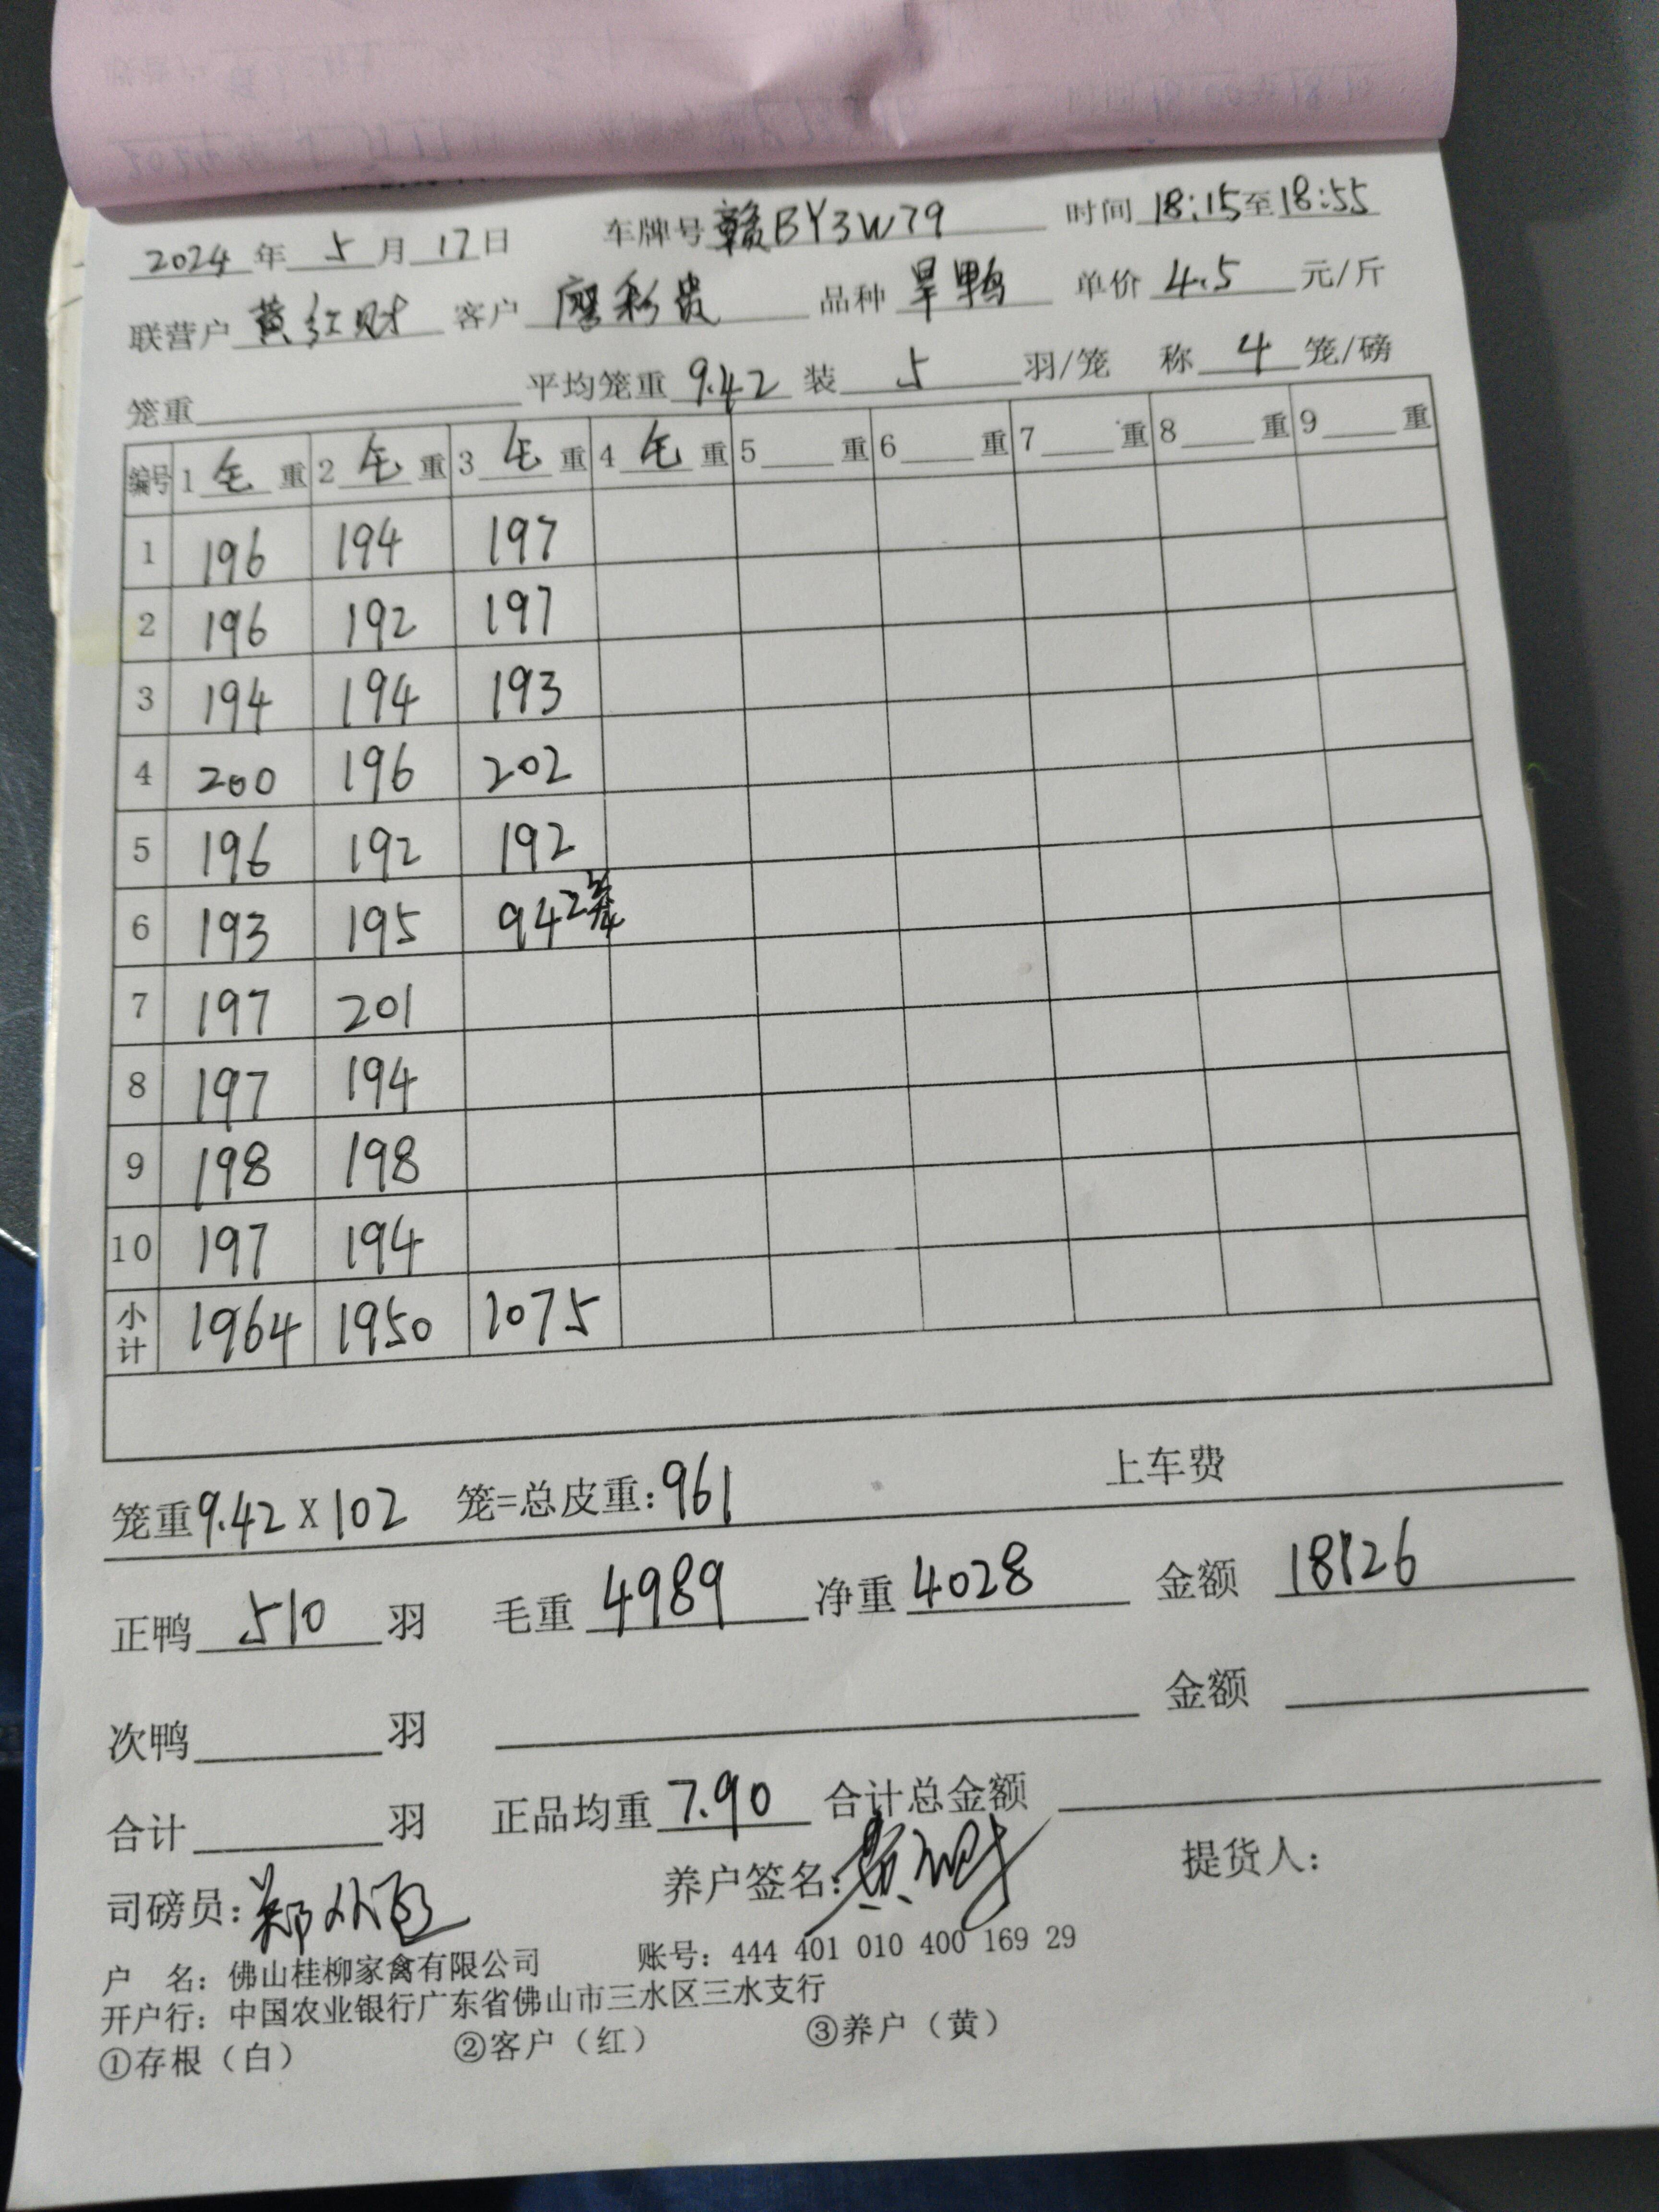 2024年5月17日 车牌号赣BY3W79 时间18:15至18:55
联营户黄红财 客户廖彩贵 品种旱鸭 单价4.5元/斤
笼重 平均笼重9.42 装5羽/笼 称4笼/磅
编号 1毛重 2毛重 3毛重 4毛重 5重 6重 7重 8重 9重
1 196 194 197
2 196 192 197
3 194 194 193
4 200 196 202
5 196 192 192
6 193 195 94 2笼
7 197 201
8 197 194
9 198 198
10 197 194
小计 1964 1950 1075
笼重9.42X102 笼=总皮重:961 上车费
正鸭510羽 毛重4989 净重4028 金额18126
次鸭 羽 金额
合计 羽 正品均重7.90 合计总金额
司磅员: 养户签名:黄红财 提货人:
户 名: 佛山桂柳家禽有限公司 账号: 444 401 010 400 169 29
开户行: 中国农业银行广东省佛山市三水区三水支行
①存根(白) ②客户(红) ③养户(黄)